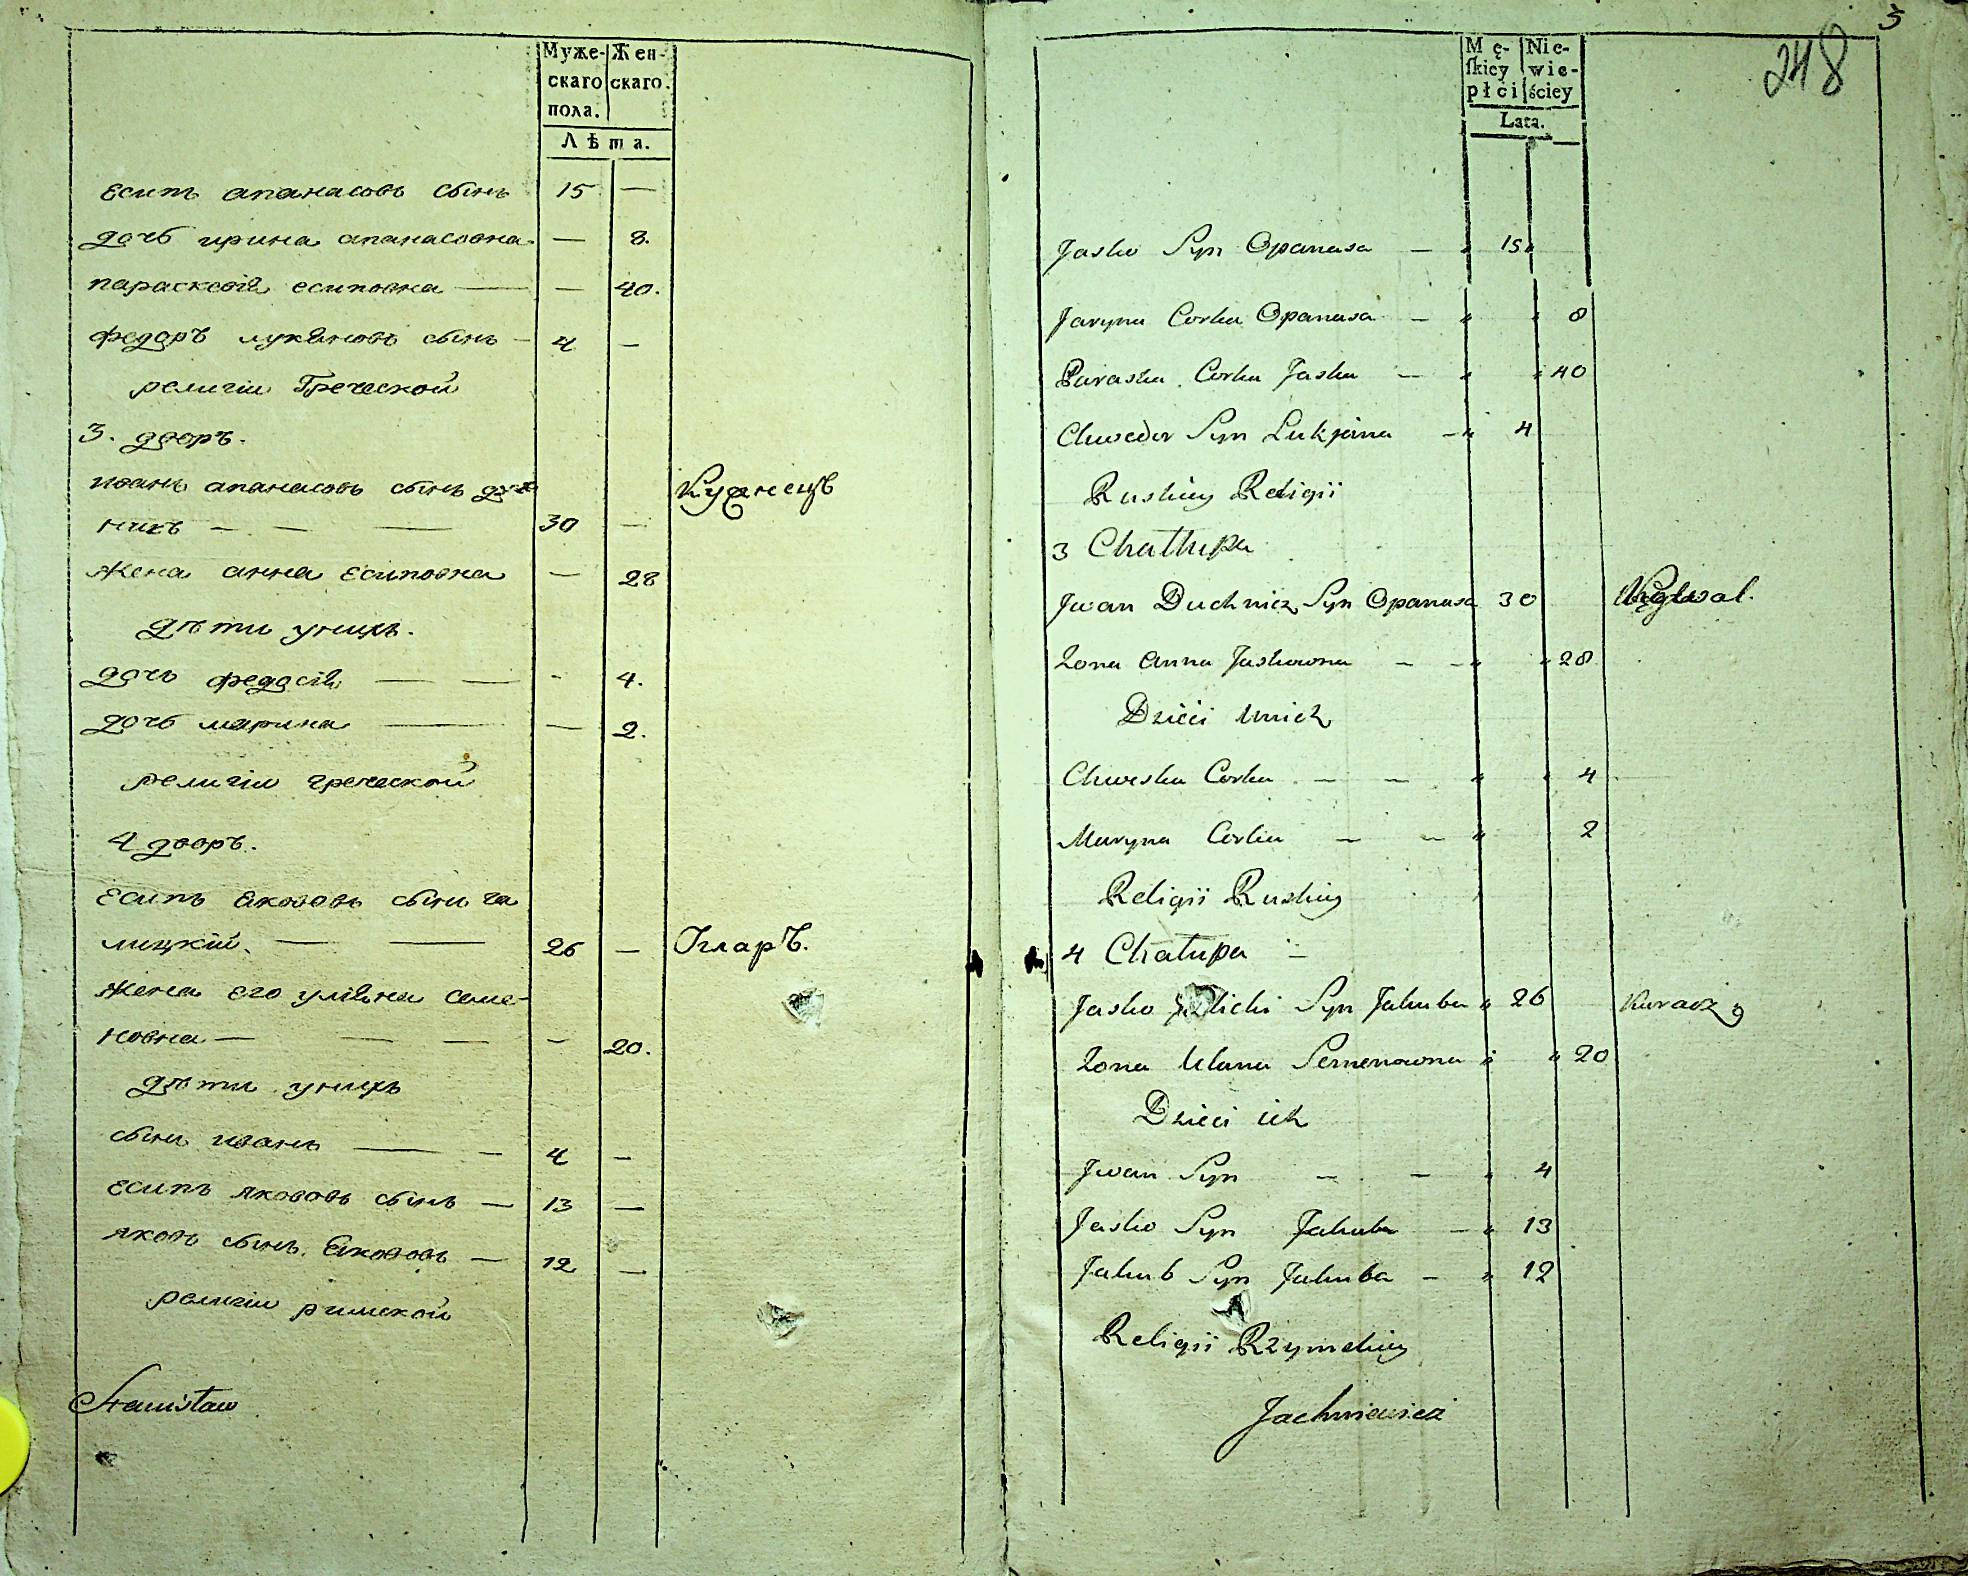 Муже- Жен-
скаго скаго.
пола.
Лѣта.
есипъ апанасовъ сынъ 15 —
дочь ирина апанасовна — 8.
параскевiя есиповна — — 40.
федоръ лукяновъ сынъ — 4 —
религiи Греческой
3. дворъ.
иванъ апанасовъ сынъ дух
никъ — — — 30 —
жена анна есиповна — 28
дѣти унихъ.
дочь федосiя — — - 4.
дочь марина — — 2.
религiи греческой
4 дворъ.
есипъ якововъ сынъ га
лицкiй. — — 26 — Огляръ.
жена его улiяна семе-
новна — — — — 20.
дѣти унихъ
сынъ иванъ — — 4 —
есипъ якововъ сынъ — 13 —
яковъ сынъ якововъ — 12 —
религiи римской
Stanisław
5
248
Mę- Nie-
ſkiey wie-
płci ściey
Lata.
Jasko Syn Opanasa — " 15 "
Jaryna Corka Opanasa — " " 8
Paraska Corka Jaska — " " 40
Chwedor Syn Lukjana — " 4
Ruskiey Religii
3 Chałupa
Jwan Duchnicz Syn Opanasa 30
Zona Anna Jaskowna — — " " 28
Dzieci Unich
Chweska Corka — — " " 4
Maryna Corka — — " 2
Religii Ruskiey
4 Chałupa —
Jasko Syn Jakuba " 26
Zona Ulana Semenowna " " 20
Dzieci ich
Jwan Syn — — " 4
Jasko Syn Jakuba — " 13
Jakub Syn Jakuba — " 12
Religii Rzymskiey
Jachniewicz